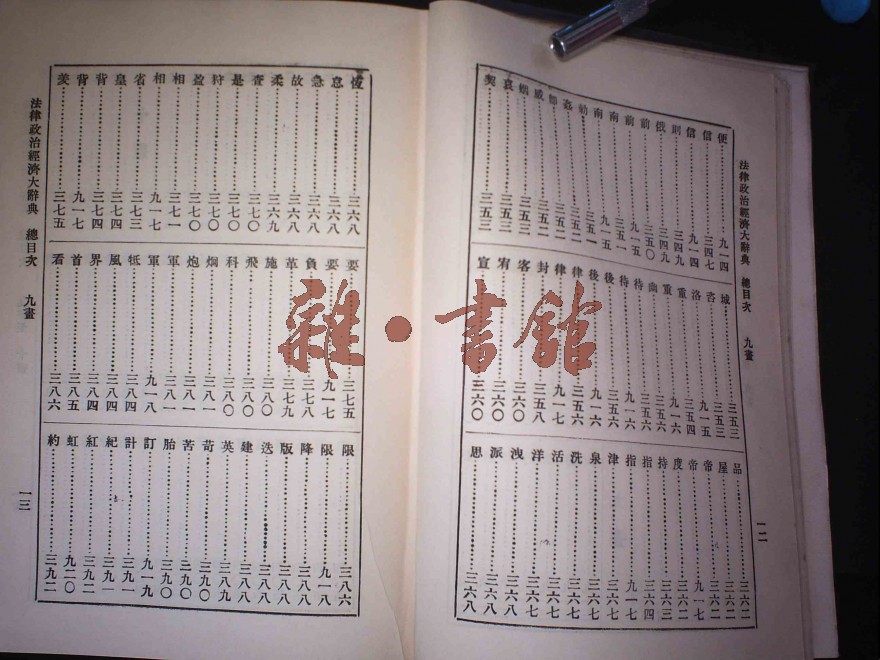 法律政治經濟大辭典 總目次 九畫 一二
便……九一四
信……三四七
信……九一四
則……三四九
俄……三四九
前……三五〇
前……九一五
南……三五一
南……九一五
勅……三五一
姦……三五二
威……三五二
姻……三五三
哀……三五三
契……三五三
城……三五三
咨……三五三
洛……九一五
重……三五四
重……九一六
幽……三五六
待……三五六
待……九一六
後……三五六
後……九一六
律……三五六
律……九一七
封……三五八
客……三六〇
宥……三六〇
宣……三六〇
品……三六二
屋……三六二
帝……三六二
帝……九一七
度……三六二
持……三六三
指……三六四
指……九一七
津……三六七
泉……三六七
洗……三六七
活……三六七
洋……三六七
洩……三六八
派……三六八
思……三六八
恆……三六八
怠……三六八
急……三六八
故……三六八
柔……三六九
査……三七〇
是……三七〇
狩……三七〇
盈……三七〇
相……三七一
相……九一七
省……三七三
皇……三七四
背……三七四
背……九一七
羨……三七五
要……三七五
要……九一七
負……三七八
革……三七九
施……三八〇
飛……三八〇
科……三八〇
炯……三八一
炮……三八一
軍……三八一
軍……九一八
牴……三八四
風……三八四
界……三八四
首……三八五
看……三八六
限……三八六
限……九一八
降……三八八
版……三八八
迭……三八八
建……三八八
英……三八九
苛……三九〇
苦……三九〇
胎……三九〇
訂……九一九
計……三九一
紀……三九一
紅……三九二
虹……九二〇
約……三九二
法律政治經濟大辭典 總目次 九畫 一三
雜·書館